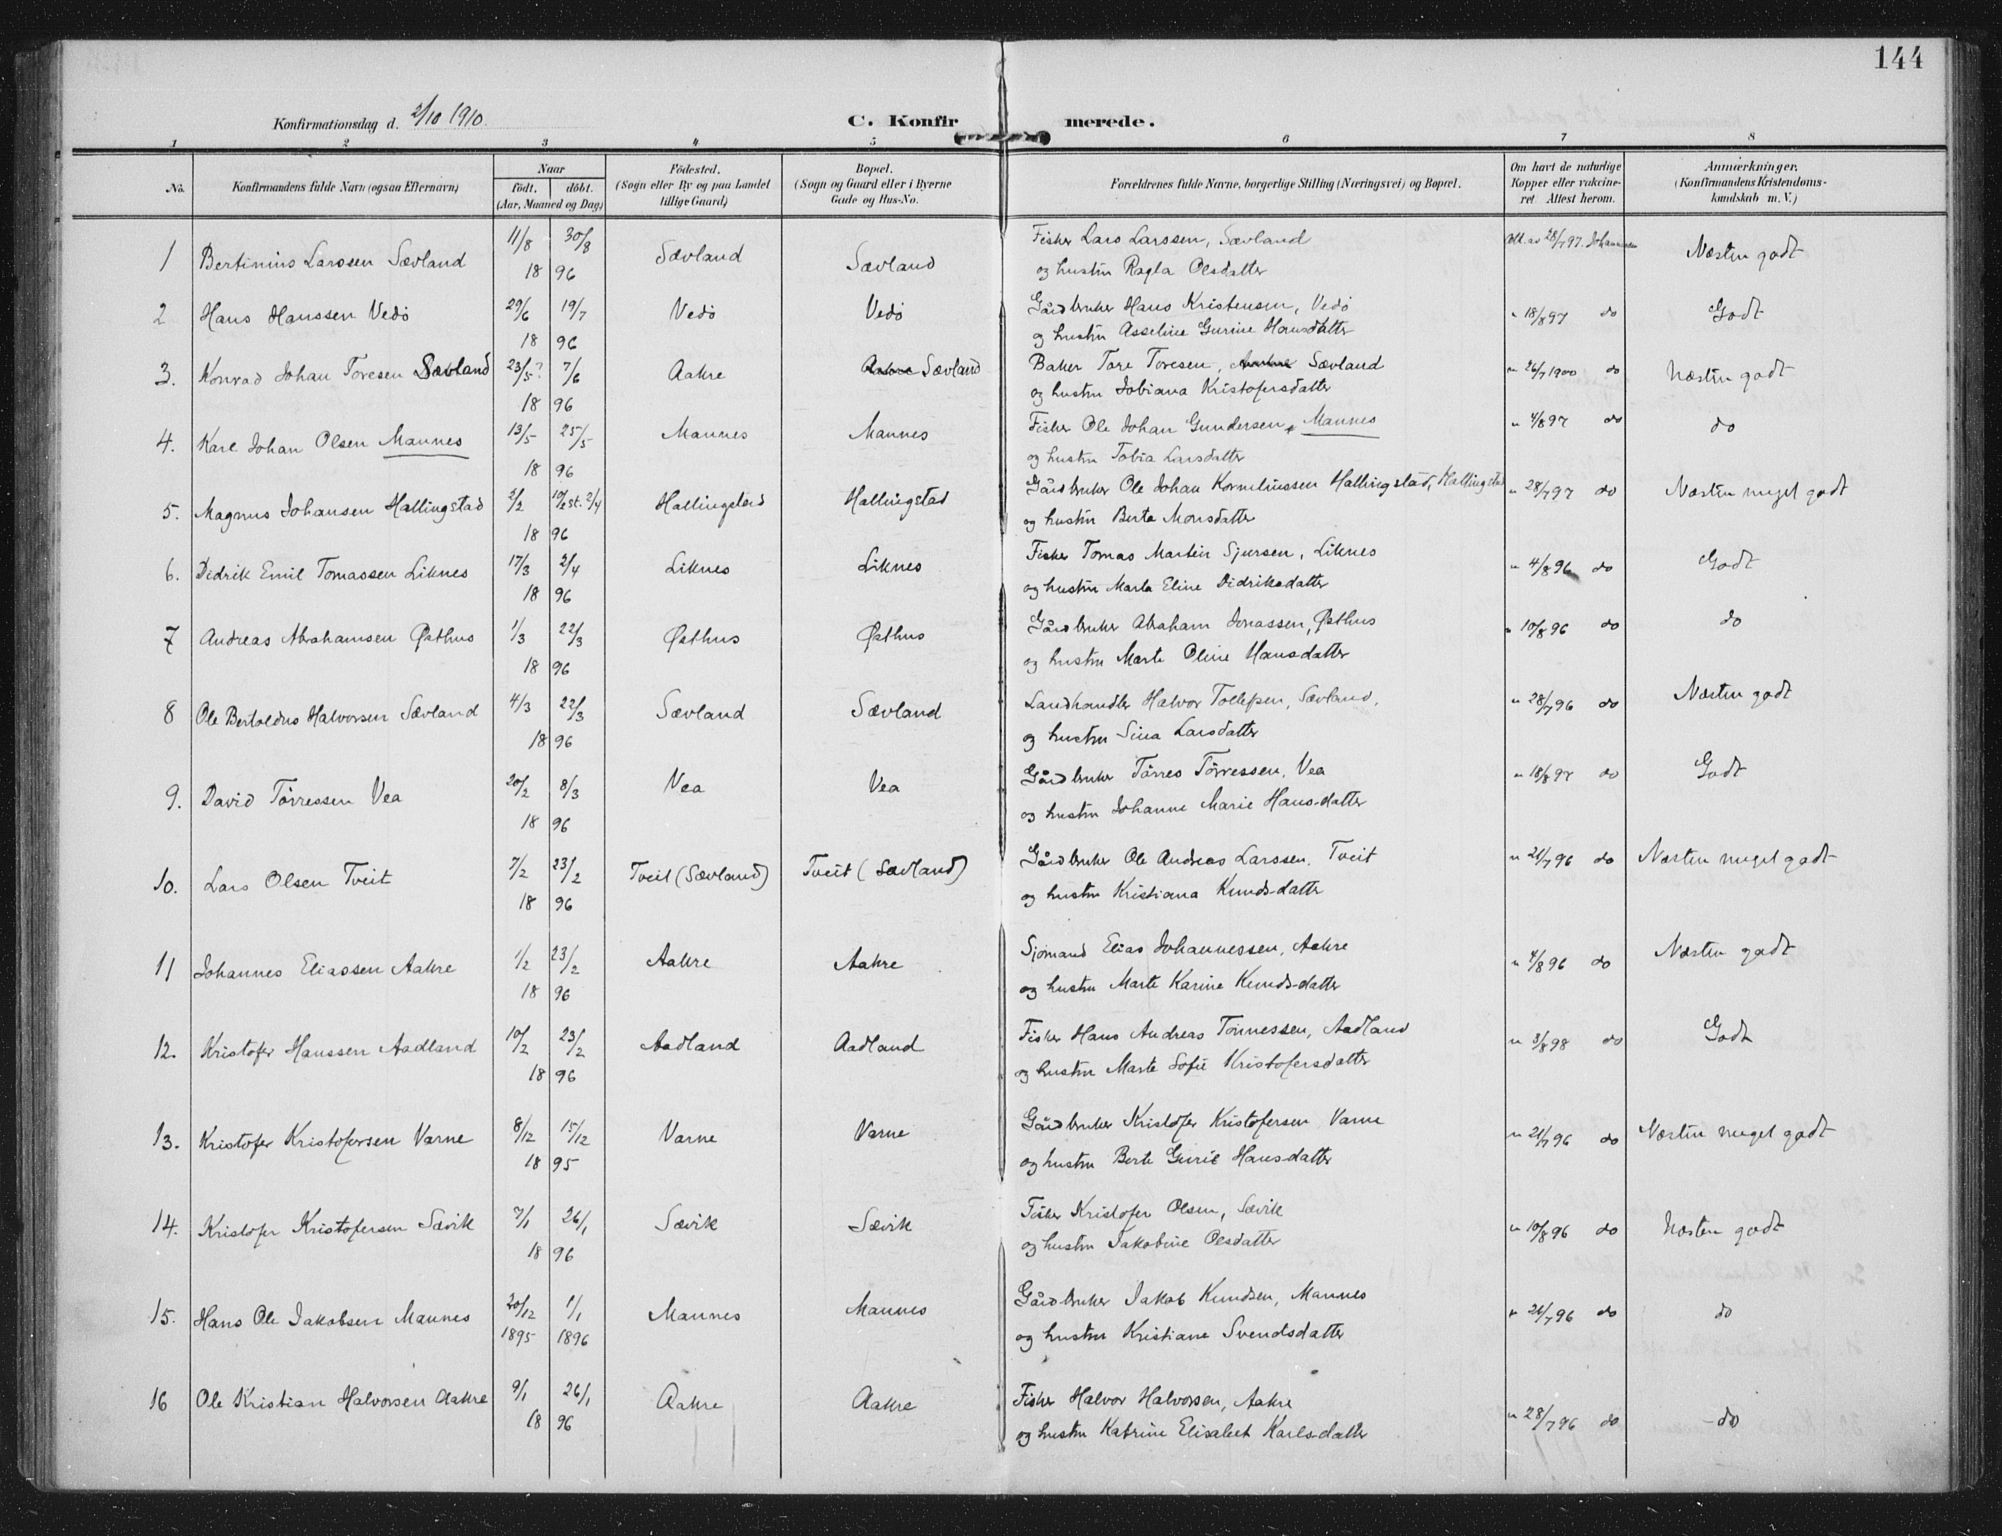 144
Konfirmationsdag d. 2/10 1910. C. Konfirmerede.
1 2 3 4 5 6 7 8
No. Konfirmandens fulde Navn (ogsaa Efternavn) Naar födt. döbt. (Aar, Maaned og Dag) Födested. (Sogn eller By og paa Landet tillige Gaard) Bopæl. (Sogn og Gaard eller i Byerne Gade og Hus-No. Forældrenes fulde Navne, borgerlige Stilling (Næringsvei) og Bopæl. Om havt de naturlige Kopper eller vakcineret. Attest herom. Anmærkninger. (Konfirmandens Kristendomskundskab m. V.)
1 Bertinius Larssen Sævland 11/8 30/8 18 96 Sævland Sævland Fisker Lars Larssen, Sævland 28/7 97 Næsten godt
og hustru Ragla Olsdatter
2 Hans Hanssen Vedö 29/6 19/7 18 96 Vedö Vedö Gårdbruker Hans Kristensen, Vedö " 18/8 97 do Godt
og hustru Asseline Gurine Hansdatter
3. Konrad Johan Toresen Sævland 23/5? 7/6 18 96 Aakre Aakre Sævland Baker Tore Toresen, Aakre Sævland " 26/7 1900 do Næsten godt
og hustru Tobiana Kristofersdatter
4. Karl Johan Olsen Mannes 13/5 25/5 18 96 Mannes Mannes Fisker Ole Johan Gundersen, Mannes " 4/8 97 do do
og hustru Tobia Larsdatter
5. Magnus Johansen Hallingstad 2/2 10/2 st. 2/4 18 96 Hallingstad Hallingstad Gårdbruker Ole Johan Korneliussen Hallingstad, Hallingstad " 28/7 97 do Næsten meget godt
og hustru Berta Monsdatter
6. Didrik Emil Tomassen Liknes 17/3 2/4 18 96 Liknes Liknes Fisker Tomas Martin Sjursen, Liknes " 4/8 96 do Godt
og hustru Marta Eline Didriksdatter
7 Andreas Abrahamsen Østhus 1/3 22/3 18 96 Østhus Østhus Gårdbruker Abraham Jonassen, Østhus " 10/8 96 do do
og hustru Marte Oline Hansdatter
8 Ole Bertoldus Halvorsen Sævland 4/3 22/3 18 96 Sævland Sævland Landhandler Halvor Tollefsen, Sævland. " 28/7 96 do Næsten godt
og hustru Sina Larsdatter
9. David Törressen Vea 20/2 8/3 18 96 Vea Vea Gårdbruker Törres Törressen, Vea " 18/8 97 do Godt
og hustru Johanne Marie Hansdatter
10. Lars Olsen Tveit 7/2 23/2 18 96 Tveit (Sævland) Tveit (Sævland) Gårdbruker Ole Andreas Larssen, Tveit " 21/7 96 do Næsten meget godt
og hustru Kristiana Knuds-datter
11 Johannes Eliassen Aakre 1/2 23/2 18 96 Aakre Aakre Sjömand Elias Johannessen, Aakre " 4/8 96 do Næsten godt
og hustru Marte Karine Knuds-datter
12. Kristofer Hanssen Aadland 10/2 23/2 18 96 Aadland Aadland Fisker Hans Andreas Tönnessen, Aadland " 3/8 98 do Godt
og hustru Marte Sofie Kristofersdatter
13. Kristofer Kristofersen Varne 8/12 15/12 18 95 Varne Varne Gårdbruker Kristofer Kristofersen Varne " 21/7 96 do Næsten meget godt
og hustru Berte Gurie Hansdatter
14. Kristofer Kristofersen Sævik 7/1 26/1 18 96 Sævik Sævik Fisker Kristofer Olsen, Sævik " 10/8 96 do Næsten godt
og hustru Jakobine Olsdatter
15. Hans Ole Jakobsen Mannes 20/12 1/1 1895 1896 Mannes Mannes Gårdbruker Jakob Knudsen, Mannes " 21/7 96 do do
og hustru Kristiane Svendsdatter
16 Ole Kristian Halvorsen Aakre 9/1 26/1 18 96 Aakre Aakre Fisker Halvor Halvorsen, Aakre " 28/7 96 do - do
og hustru Katrine Elisabet Karlsdatter